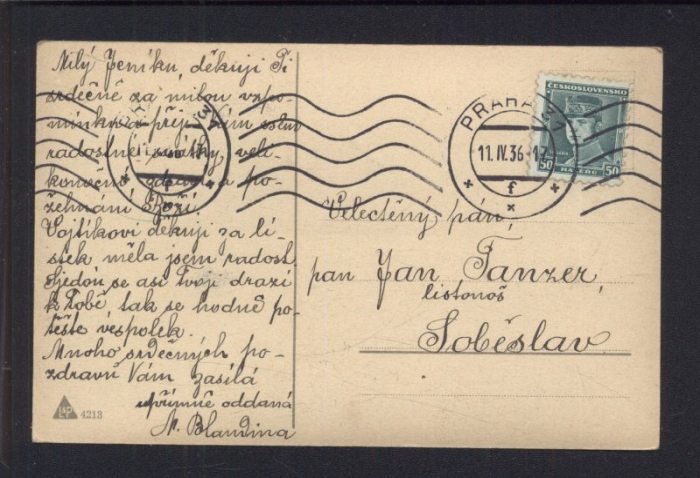 Milý Jeníku, děkuji Ti
srdečně za milou vzpo-
mínku a přeji Vám všem
radostné svátky, veli-
konoční zdraví a po-
žehnání Boží.
Vojtíkovi děkuji za lí-
stek měla jsem radost
Sjedou se asi Tvoji drazí
k Tobě, tak se hodně po-
těšte vespolek.
Mnoho srdečných po-
zdravů Vám zasílá
upřímně oddaná
M. Blandina
4213
PRAHA
11. IV. 36
f
ČESKOSLOVENSKO
50
50
HALÉŘŮ
Velectěný pán,
pan Jan Tanzer,
listonoš
Soběslav